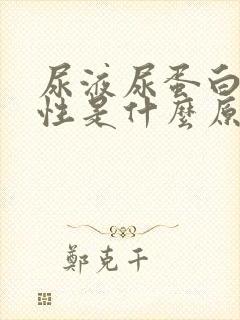 尿液尿蛋白
性是什麼原
鄭克干